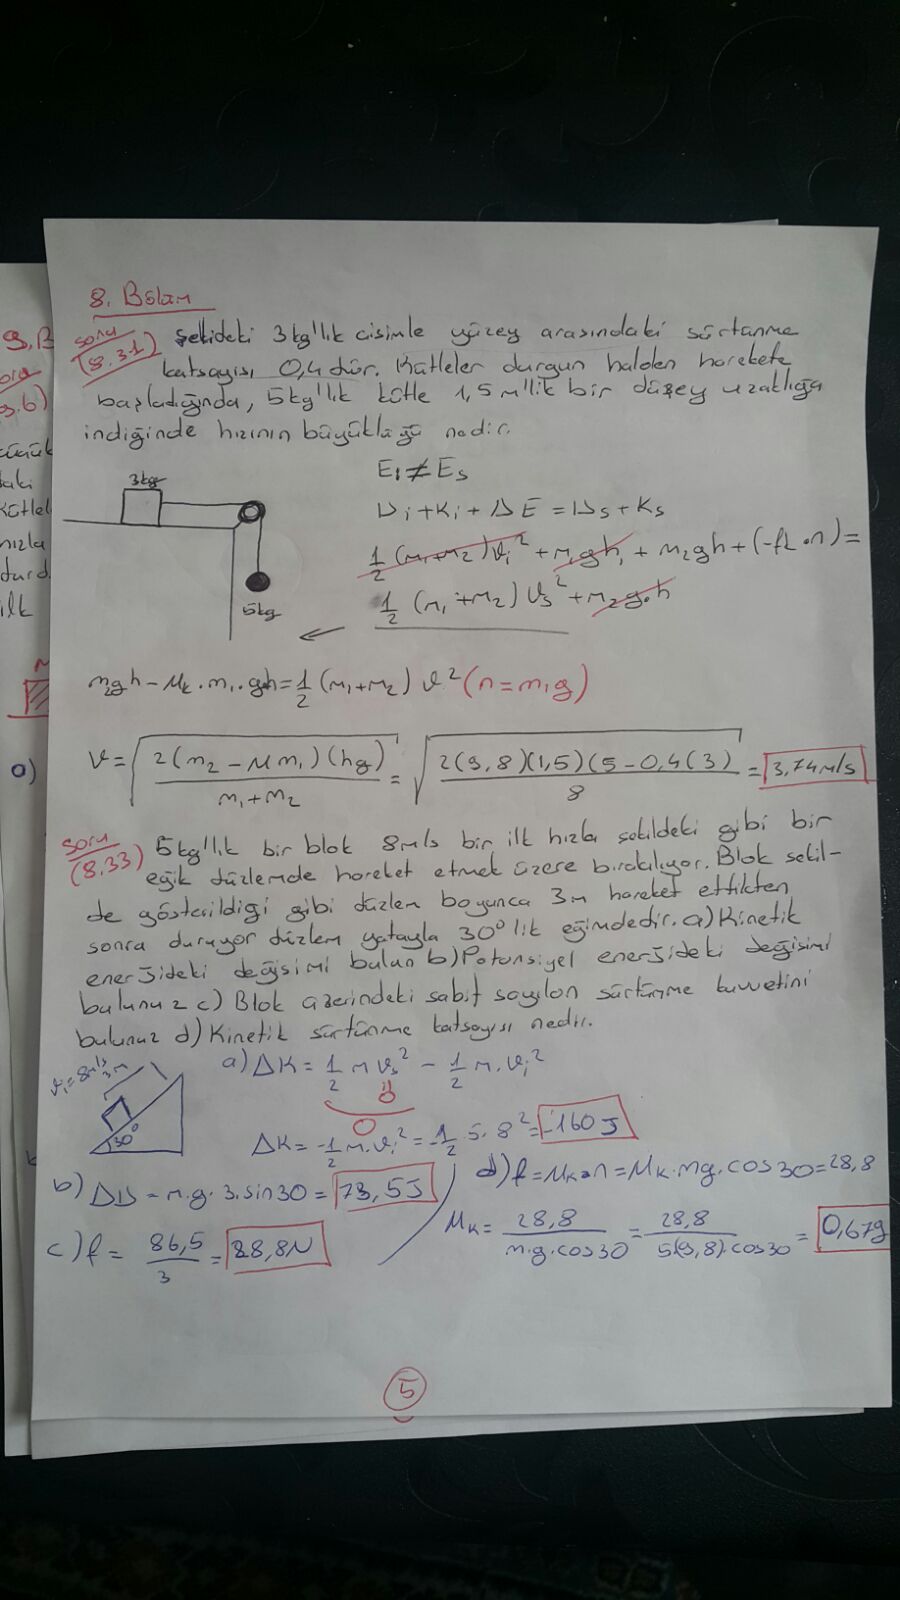 8. Bölüm
soru (8.31) Şekildeki 3kg'lık cisimle yüzey arasındaki sürtünme
katsayısı 0,4 dür. Kütleler durgun halden harekete
başladığında, 5kg'lık kütle 1,5 m'lik bir düşey uzaklığa
indiğinde hızının büyüklüğü nedir.
3kg
5kg
Ei ≠ Es
Ui + Ki + ΔE = Us + Ks
1/2 (m1+m2) Vi² + m1gh1 + m2gh + (-fk · n) =
1/2 (m1+m2) Vs² + m2g.h
m2gh - μk . m1 . gh = 1/2 (m1+m2) V² (n = m1g)
V = √(2(m2 - μm1)(hg) / m1+m2) = √(2(9,8)(1,5)(5-0,4(3) / 8) = 3,74 m/s
soru (8.33) 5kg'lık bir blok 8m/s bir ilk hızla şekildeki gibi bir
eğik düzlemde hareket etmek üzere bırakılıyor. Blok şekil-
de gösterildiği gibi düzlem boyunca 3m hareket ettikten
sonra duruyor düzlem yatayla 30° lik eğimdedir. a) Kinetik
enerjideki değişimi bulun b) Potansiyel enerjideki değişimi
bulunuz c) Blok üzerindeki sabit sayılan sürtünme kuvvetini
bulunuz d) Kinetik sürtünme katsayısı nedir.
Vi = 8m/s
3m
30°
a) ΔK = 1/2 m Vs² - 1/2 m . Vi²
0
0
ΔK = -1/2 m . Vi² = -1/2 5 . 8² = -160 J
b) ΔU = m . g . 3 . sin30 = 73,5 J
c) f = 86,5 / 3 = 28,8 N
d) f = μk . n = μk . mg . cos30 = 28,8
μk = 28,8 / m.g.cos30 = 28,8 / 5(9,8).cos30 = 0,679
5
9. B
a)